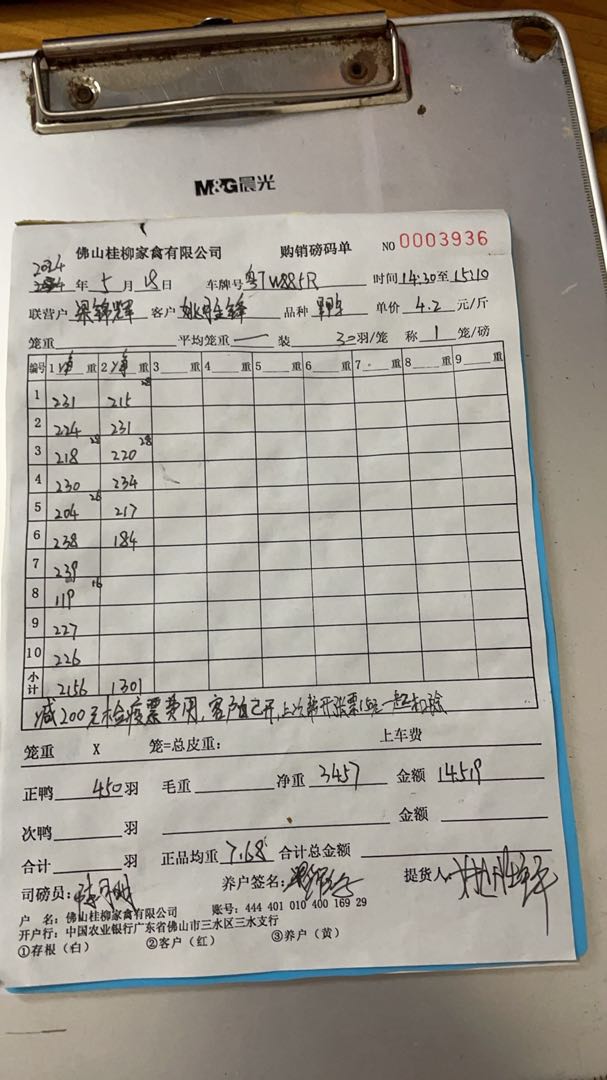 M&G晨光
佛山桂柳家禽有限公司 购销磅码单 NO 0003936
2024 年 5 月 18 日 车牌号 粤TW885R 时间 14:30至15:10
联营户 梁锦辉 客户 品种 单价 4.2 元/斤
笼重 平均笼重 一 装 30 羽/笼 称 1 笼/磅
编号 1 净 重 2 净 重 3 重 4 重 5 重 6 重 7 重 8 重 9 重
1 231 215 28
2 224 231
3 218 28 220 28
4 230 234
5 204 26 217
6 238 184
7 239
8 119 16
9 227
10 226
小计 2156 1301
减200元检疫票费用,客户自己开,上次帮开张票 一起扣除
笼重 X 笼=总皮重: 上车费
正鸭 450 羽 毛重 净重 3457 金额 14519
次鸭 羽 金额
合计 羽 正品均重 7.68 合计总金额
司磅员: 养户签名: 提货人:
户 名: 佛山桂柳家禽有限公司 账号: 444 401 010 400 169 29
开户行: 中国农业银行广东省佛山市三水区三水支行
①存根(白) ②客户(红) ③养户(黄)